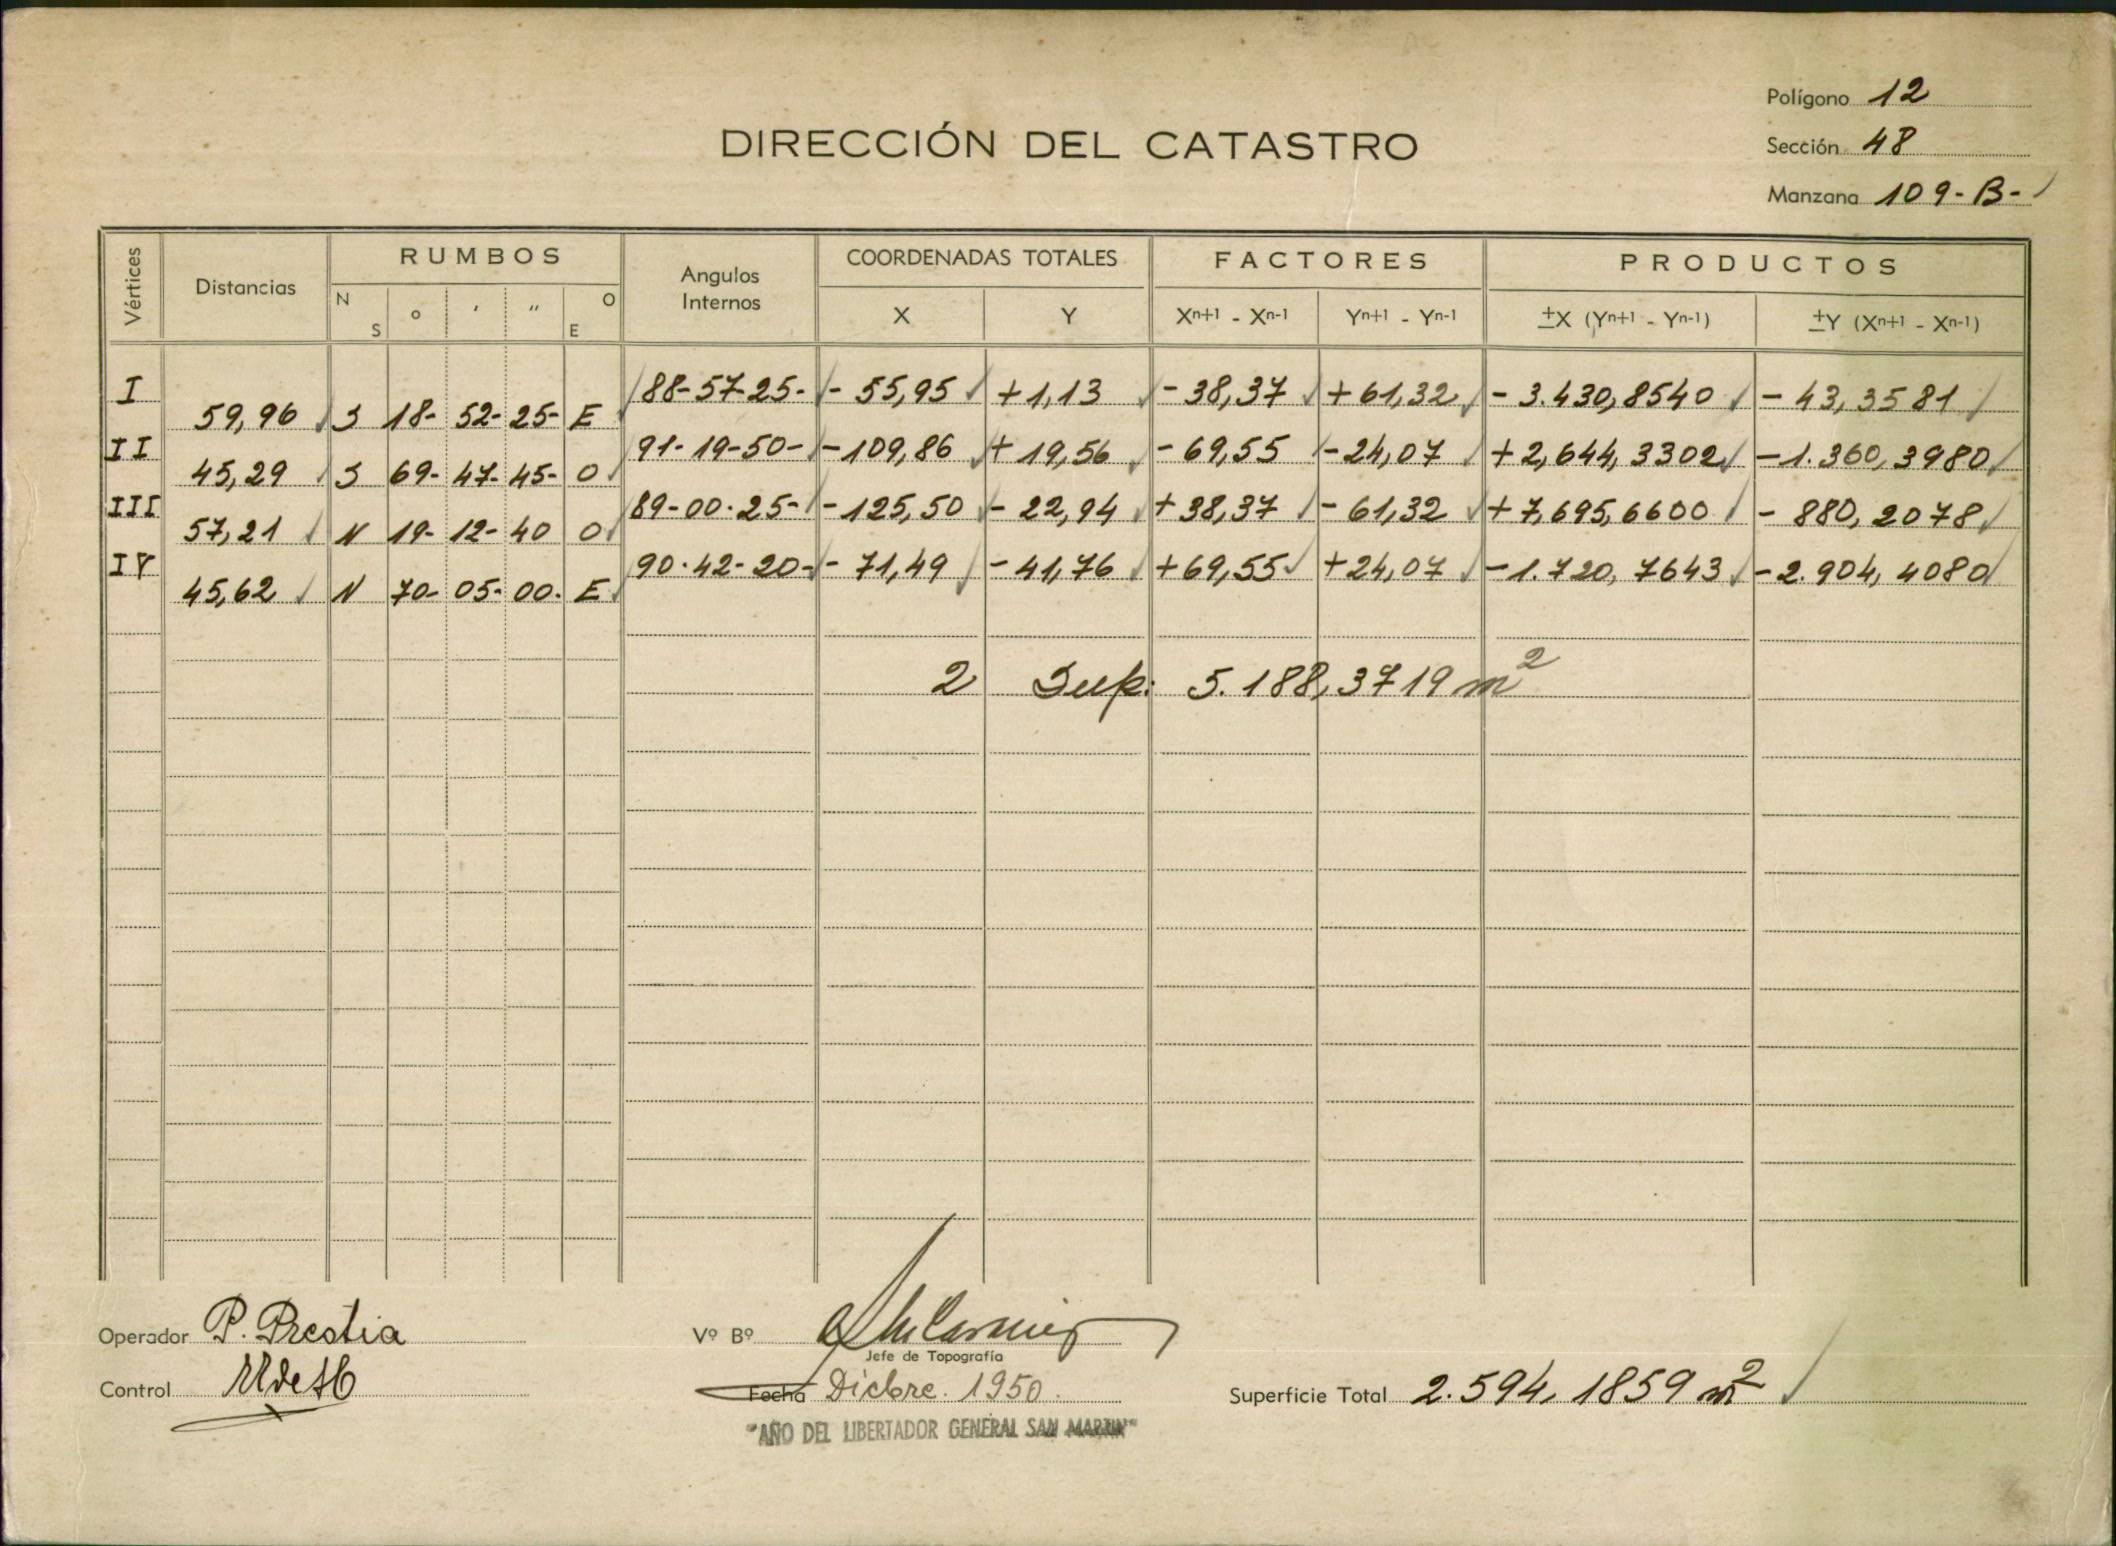 Polígono 12
DIRECCIÓN DEL CATASTRO
Sección 48
Manzana 109-B-
Vértices Distancias RUMBOS Angulos Internos COORDENADAS TOTALES FACTORES PRODUCTOS
N S o ' " O E X Y Xn+1 - Xn-1 Yn+1 - Yn-1 ±X (Yn+1 - Yn-1) ±Y (Xn+1 - Xn-1)
I 88-57-25- - 55,95 +1,13 - 38,37 + 61,32 - 3.430,8540 - 43,3581
59,96 S 18- 52- 25- E
II 91-19-50- -109,86 + 19,56 - 69,55 -24,07 +2,644,3302 -1.360,3980
45,29 S 69- 47- 45- O
III 89-00-25- -125,50 - 22,94 +38,37 - 61,32 +7,695,6600 - 880,2078
57,21 N 19- 12- 40 O
IV 90-42-20- - 71,49 -41,76 +69,55 +24,07 -1.720,7643 -2.904,4080
45,62 N 70- 05- 00- E
2 Sup: 5.188,3719 m²
Operador P. Prestia
Vº Bº
Jefe de Topografía
Control
Fecha Dicbre. 1950.
Superficie Total 2.594,1859 m²
"AÑO DEL LIBERTADOR GENERAL SAN MARTIN"